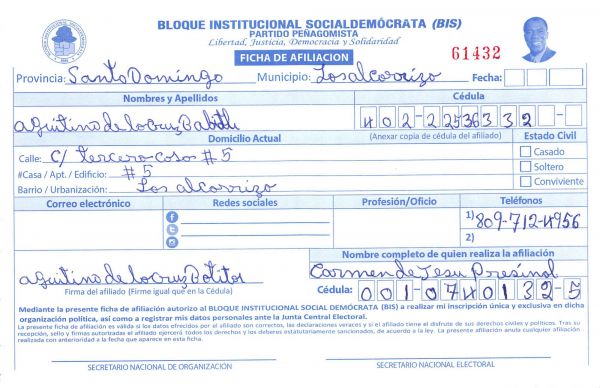 BLOQUE INSTITUCIONAL SOCIALDEMÓCRATA (BIS)
PARTIDO PEÑAGOMISTA
Libertad, Justicia, Democracia y Solidaridad
FICHA DE AFILIACION
61432
Provincia: Santo Domingo Municipio: Los alcarrizo Fecha:
Nombres y Apellidos Cédula
aguitino de la Cruz 402-2253633 2-
Domicilio Actual (Anexar copia de cédula del afiliado) Estado Civil
Calle: C/ tercero casa # 5
Casado
#Casa / Apt. / Edificio: # 5
Soltero
Barrio / Urbanización: Los alcarrizo
Conviviente
Correo electrónico Redes sociales Profesión/Oficio Teléfonos
1) 809-712-4956
2)
Nombre completo de quien realiza la afiliación
aguitino de la Cruz
Carmen de Jesu Presinal
Firma del afiliado (Firme igual que en la Cédula)
Cédula: 001-0740132-5
Mediante la presente ficha de afiliación autorizo al BLOQUE INSTITUCIONAL SOCIAL DEMÓCRATA (BIS) a realizar mi inscripción única y exclusiva en dicha
organización política, así como a registrar mis datos personales ante la Junta Central Electoral.
La presente ficha de afiliación es válida si los datos ofrecidos por el afiliado son correctos, las declaraciones veraces y si el afiliado tiene el disfrute de sus derechos civiles y políticos. Tras su
recepción, sello y firmas autorizadas el afiliado ejercerá todos los derechos y los deberes estatutariamente sancionados, de acuerdo a la ley. La presente afiliación anula cualquier afiliación
realizada con anterioridad a la fecha que aparece en esta ficha.
SECRETARIO NACIONAL DE ORGANIZACIÓN
SECRETARIO NACIONAL ELECTORAL